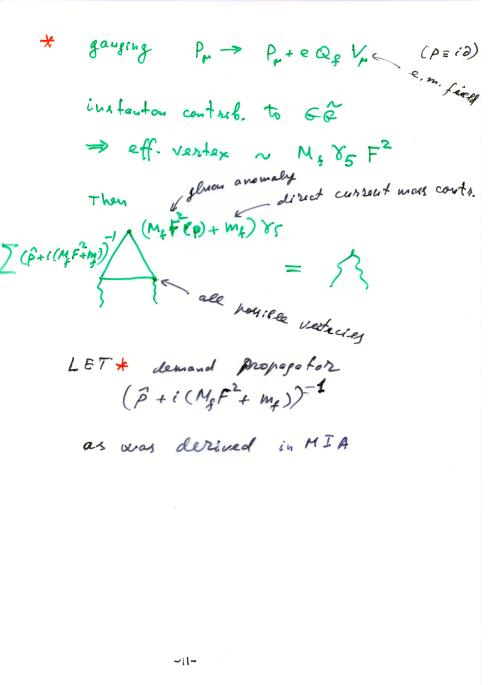 * gauging P_μ → P_μ + e Q_f V_μ (P ≡ i∂)
e.m. field
instanton contrib. to GG̃
⇒ eff. vertex ~ M_f γ_5 F²
gluon anomaly
direct current mass contr.
Then
(M_f F²(p) + m_f) γ_5
∑ (p̂ + i(M_f F² + m_f))⁻¹
=
all possible vertecies
LET * demand propagator
(p̂ + i(M_f F² + m_f))⁻¹
as was derived in MIA
-11-